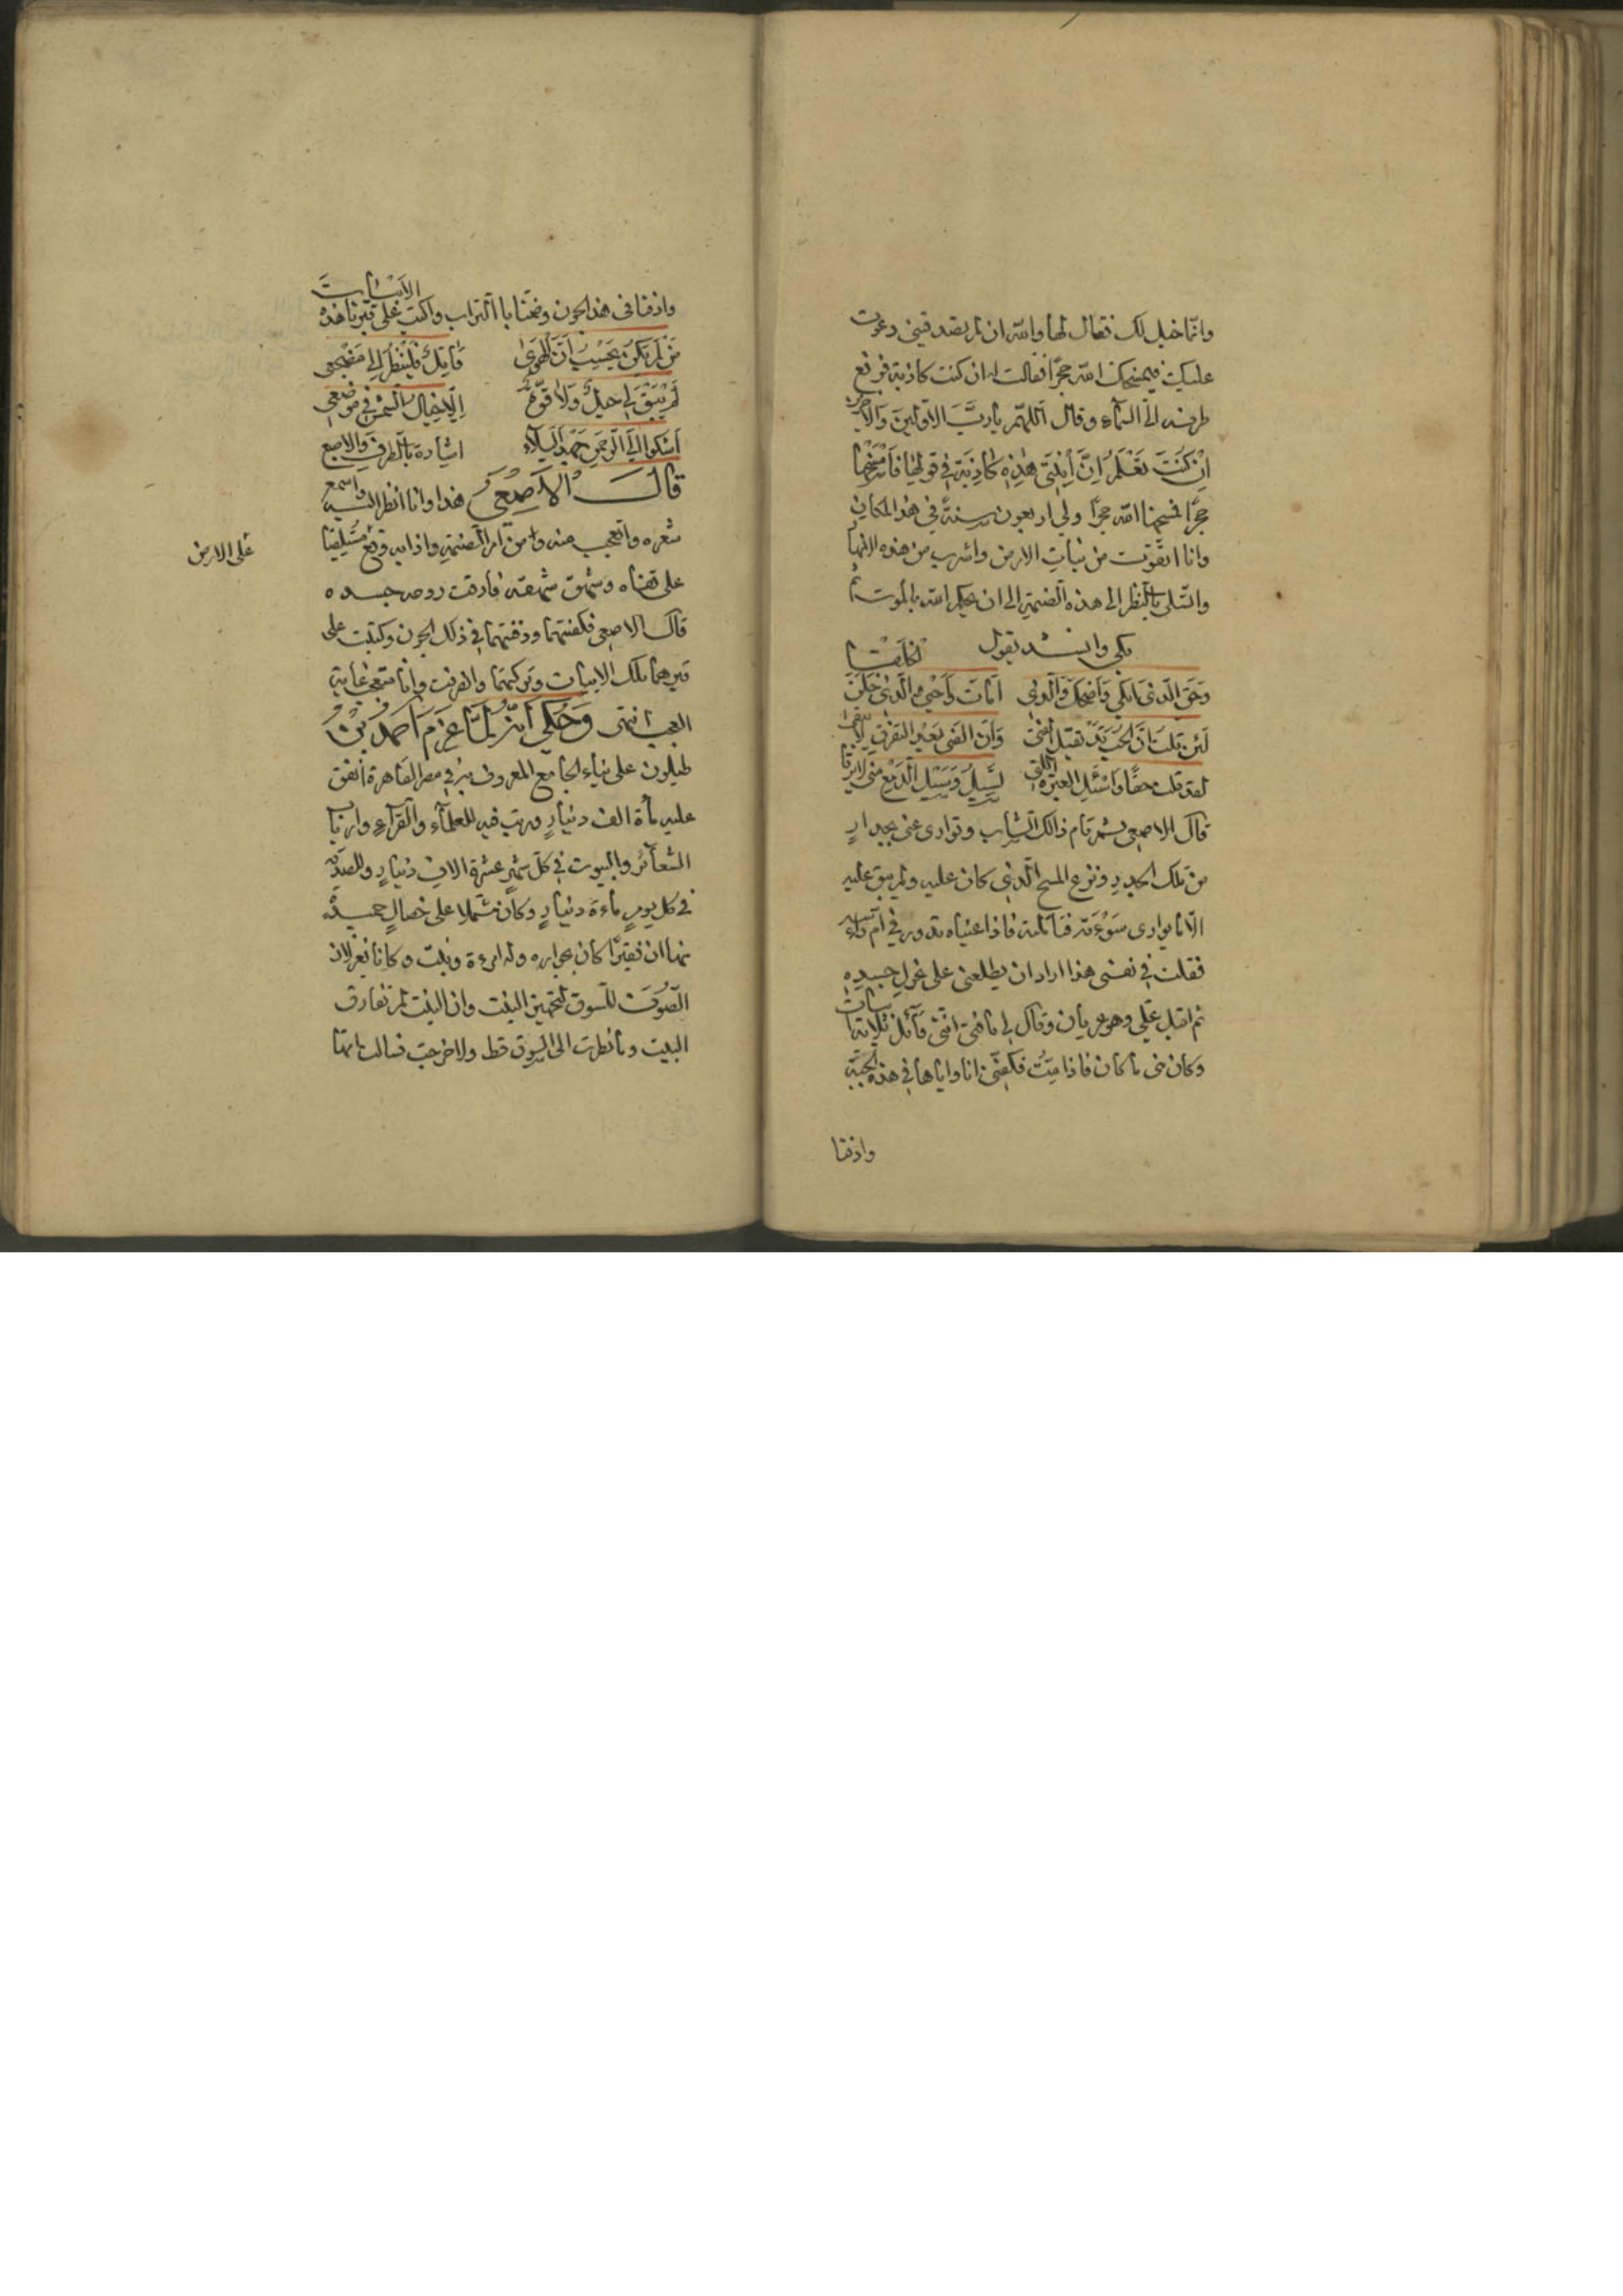 وانما خيل لك فقال لها والله ان لم تصدقيني دعوت
عليك فيمسخك الله حجرًا فقالت له ان كنت كاذبة فرفع
طرفه الى السماء وقال اللهم يا رب الاولين والاخرين
ان كنت تعلم ان ابنتي هذه كاذبة في قولها فامسخها
حجرًا فمسخها الله حجرًا ولي اربعون سنة في هذا المكان
وانا اتقوت من نبات الارض واشرب من هذه الانهار
واتسلى بالنظر الى هذه الصنمة الى ان يحكم الله بالموت ثم
بكى وانشد يقول
وحق الذي ابكى واضحك والذي امات واحيى والذي خلق الخلقا
لئن قلت ان الحب قد يقتل الفتى وان الفتى بعد التفرق لا يبقى
لقد قلت حقا واسئل العبرة التي تسيل وسيل الدمع مني لا يرقا
قال الاصمعي ثم قام ذالك الشاب وتوارى عني بجدار
من تلك الجدر ونزع المسح الذي كان عليه ولم يبق عليه
الا ما يوارى سوءته فتاملته فاذا عيناه تدور في ام راسه
فقلت في نفسي هذا اراد ان يطلعني على غزل جسده
ثم اقبل علي وهو عريان وقال لي يا فتى انني قائل ثلاثة ابيات
وكان مني ما كان فاذا مت فكفني انا واياها في هذه الجبة
وادفنا
وادفنا في هذا الجرن وغطنا بالتراب واكتب على قبرنا هذه الابيات
من لم يكن يحسب ان الهوى قاتل فلينظر الى مضجعي
لم يبق لي حيل ولا قوة الا خيال الشمس في موضعي
اشكو الى الرحمن جهد البلاء اشارة بالطرف والاصبع
قال الاصمعي هذا وانا انظر اليه واسمع
شعره واتعجب منه ومن امر الصنمة واذا به وقع مستلقيا
على الارض
على قفاه وشهق شهقة فارقت روحه جسده
قال الاصمعي فكفنتهما ودفنتهما في ذلك الجرن وكتبت على
قبرهما تلك الابيات وتركتهما وانصرفت وانا متعجب غاية
العجب انتهى وحكي انه لما عزم احمد بن
طيلون على بناء الجامع المعروف به في مصر القاهرة انفق
عليه مأة الف دينار ورتب فيه للعلماء والقراء وارباب
الشعائر والبيوت في كل شهر عشرة الاف دينار وللصدقة
في كل يوم ماءة دينار وكان مشتملا على خصال حميدة
منها ان فقيرًا كان بجواره وله امرءة وبنت وكانا يغزلان
الصوف للسوق لتجهيز البنت وان البنت لم تفارق
البيت وما نظرت الى السوق قط ولا خرجت فسالت امها